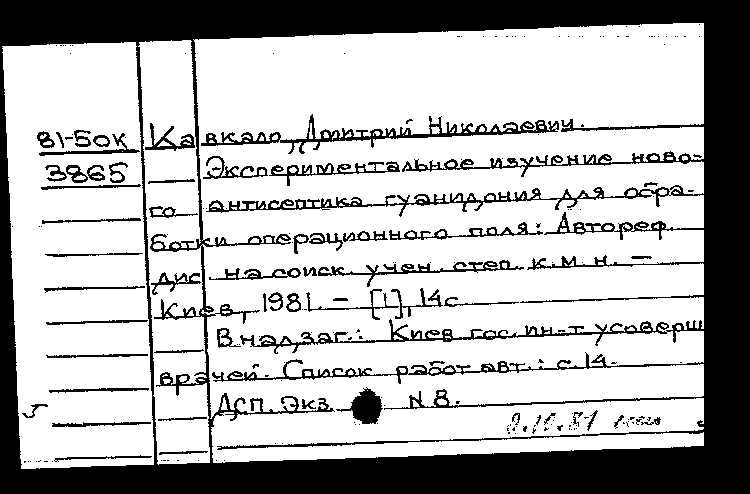 81-5ок Кавкало, Дмитрий Николаевич.
3865 Экспериментальное изучение ново-
го антисептика гуанидония для обра-
ботки операционного поля: Автореф.
дис на соиск. учен. степ. к.м.н. —
Киев, 1981. — [1], 14с
В надзаг.: Киев гос. ин-т усоверш
врачей. Список работ авт.: с.14.
5 ДСП. Экз. N 8.